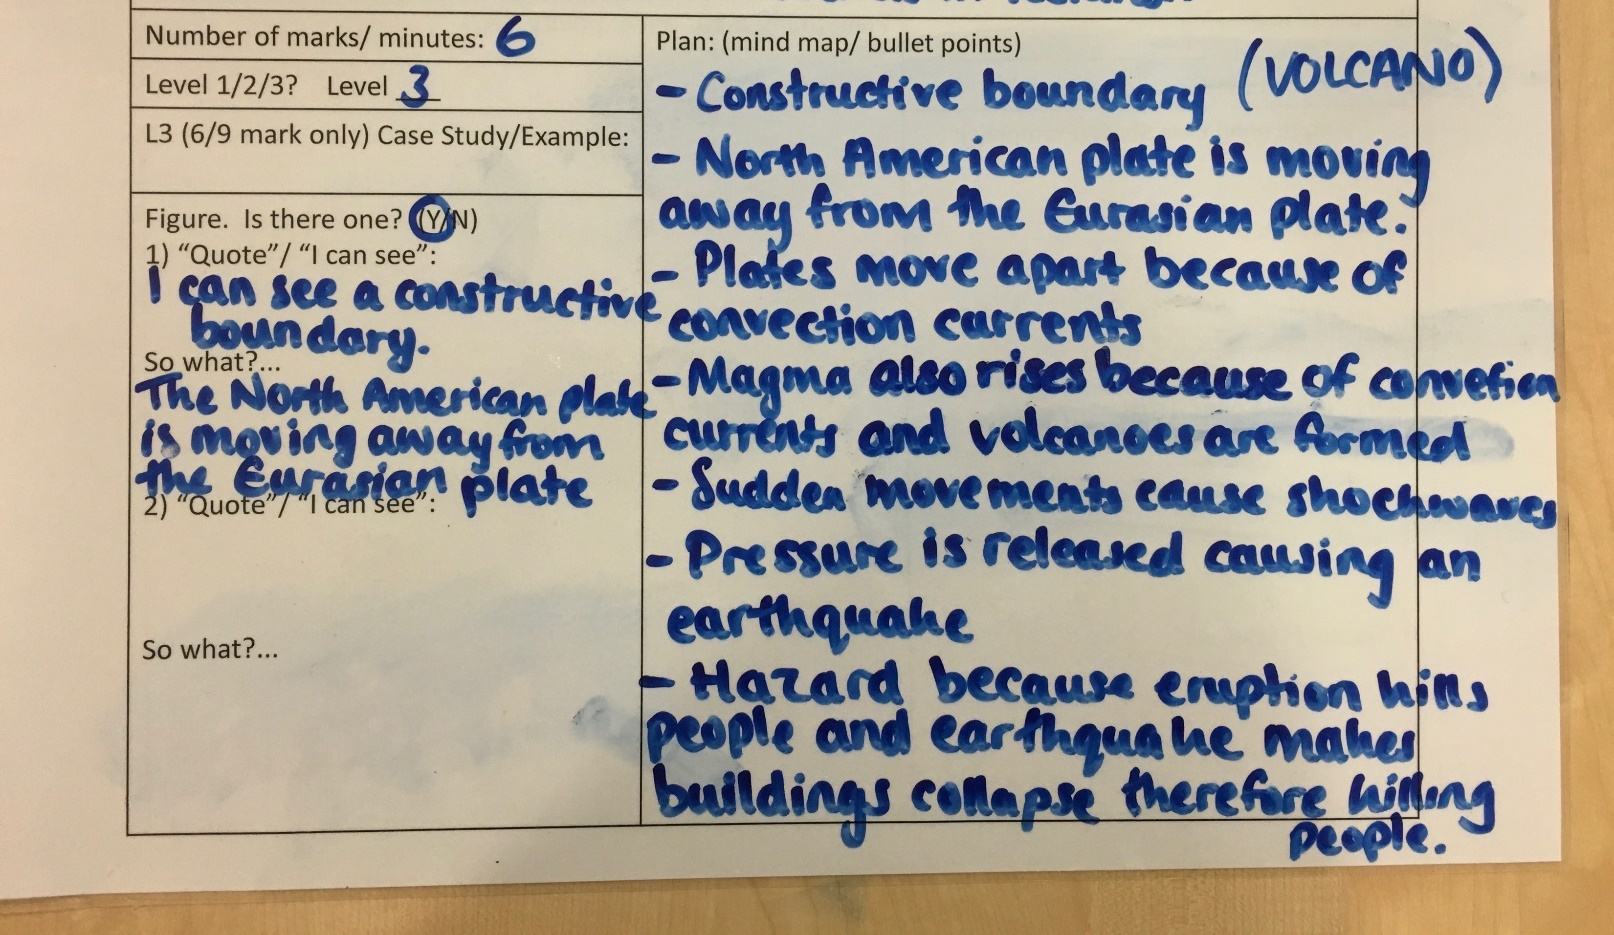 Number of marks/ minutes: 6
Level 1/2/3? Level 3
L3 (6/9 mark only) Case Study/Example:
Figure. Is there one? (Y/N)
1) “Quote”/ “I can see”:
I can see a constructive
boundary.
So what?...
The North American plate
is moving away from
the Eurasian plate
2) “Quote”/ “I can see”:
So what?...
Plan: (mind map/ bullet points)
(VOLCANO)
- Constructive boundary
- North American plate is moving
away from the Eurasian plate.
- Plates move apart because of
convection currents
- Magma also rises because of convetion
currents and volcanoes are formed
- Sudden movements cause shockwaves
- Pressure is released causing an
earthquake
- Hazard because eruption kills
people and earthquake makes
buildings collapse therefore killing
people.